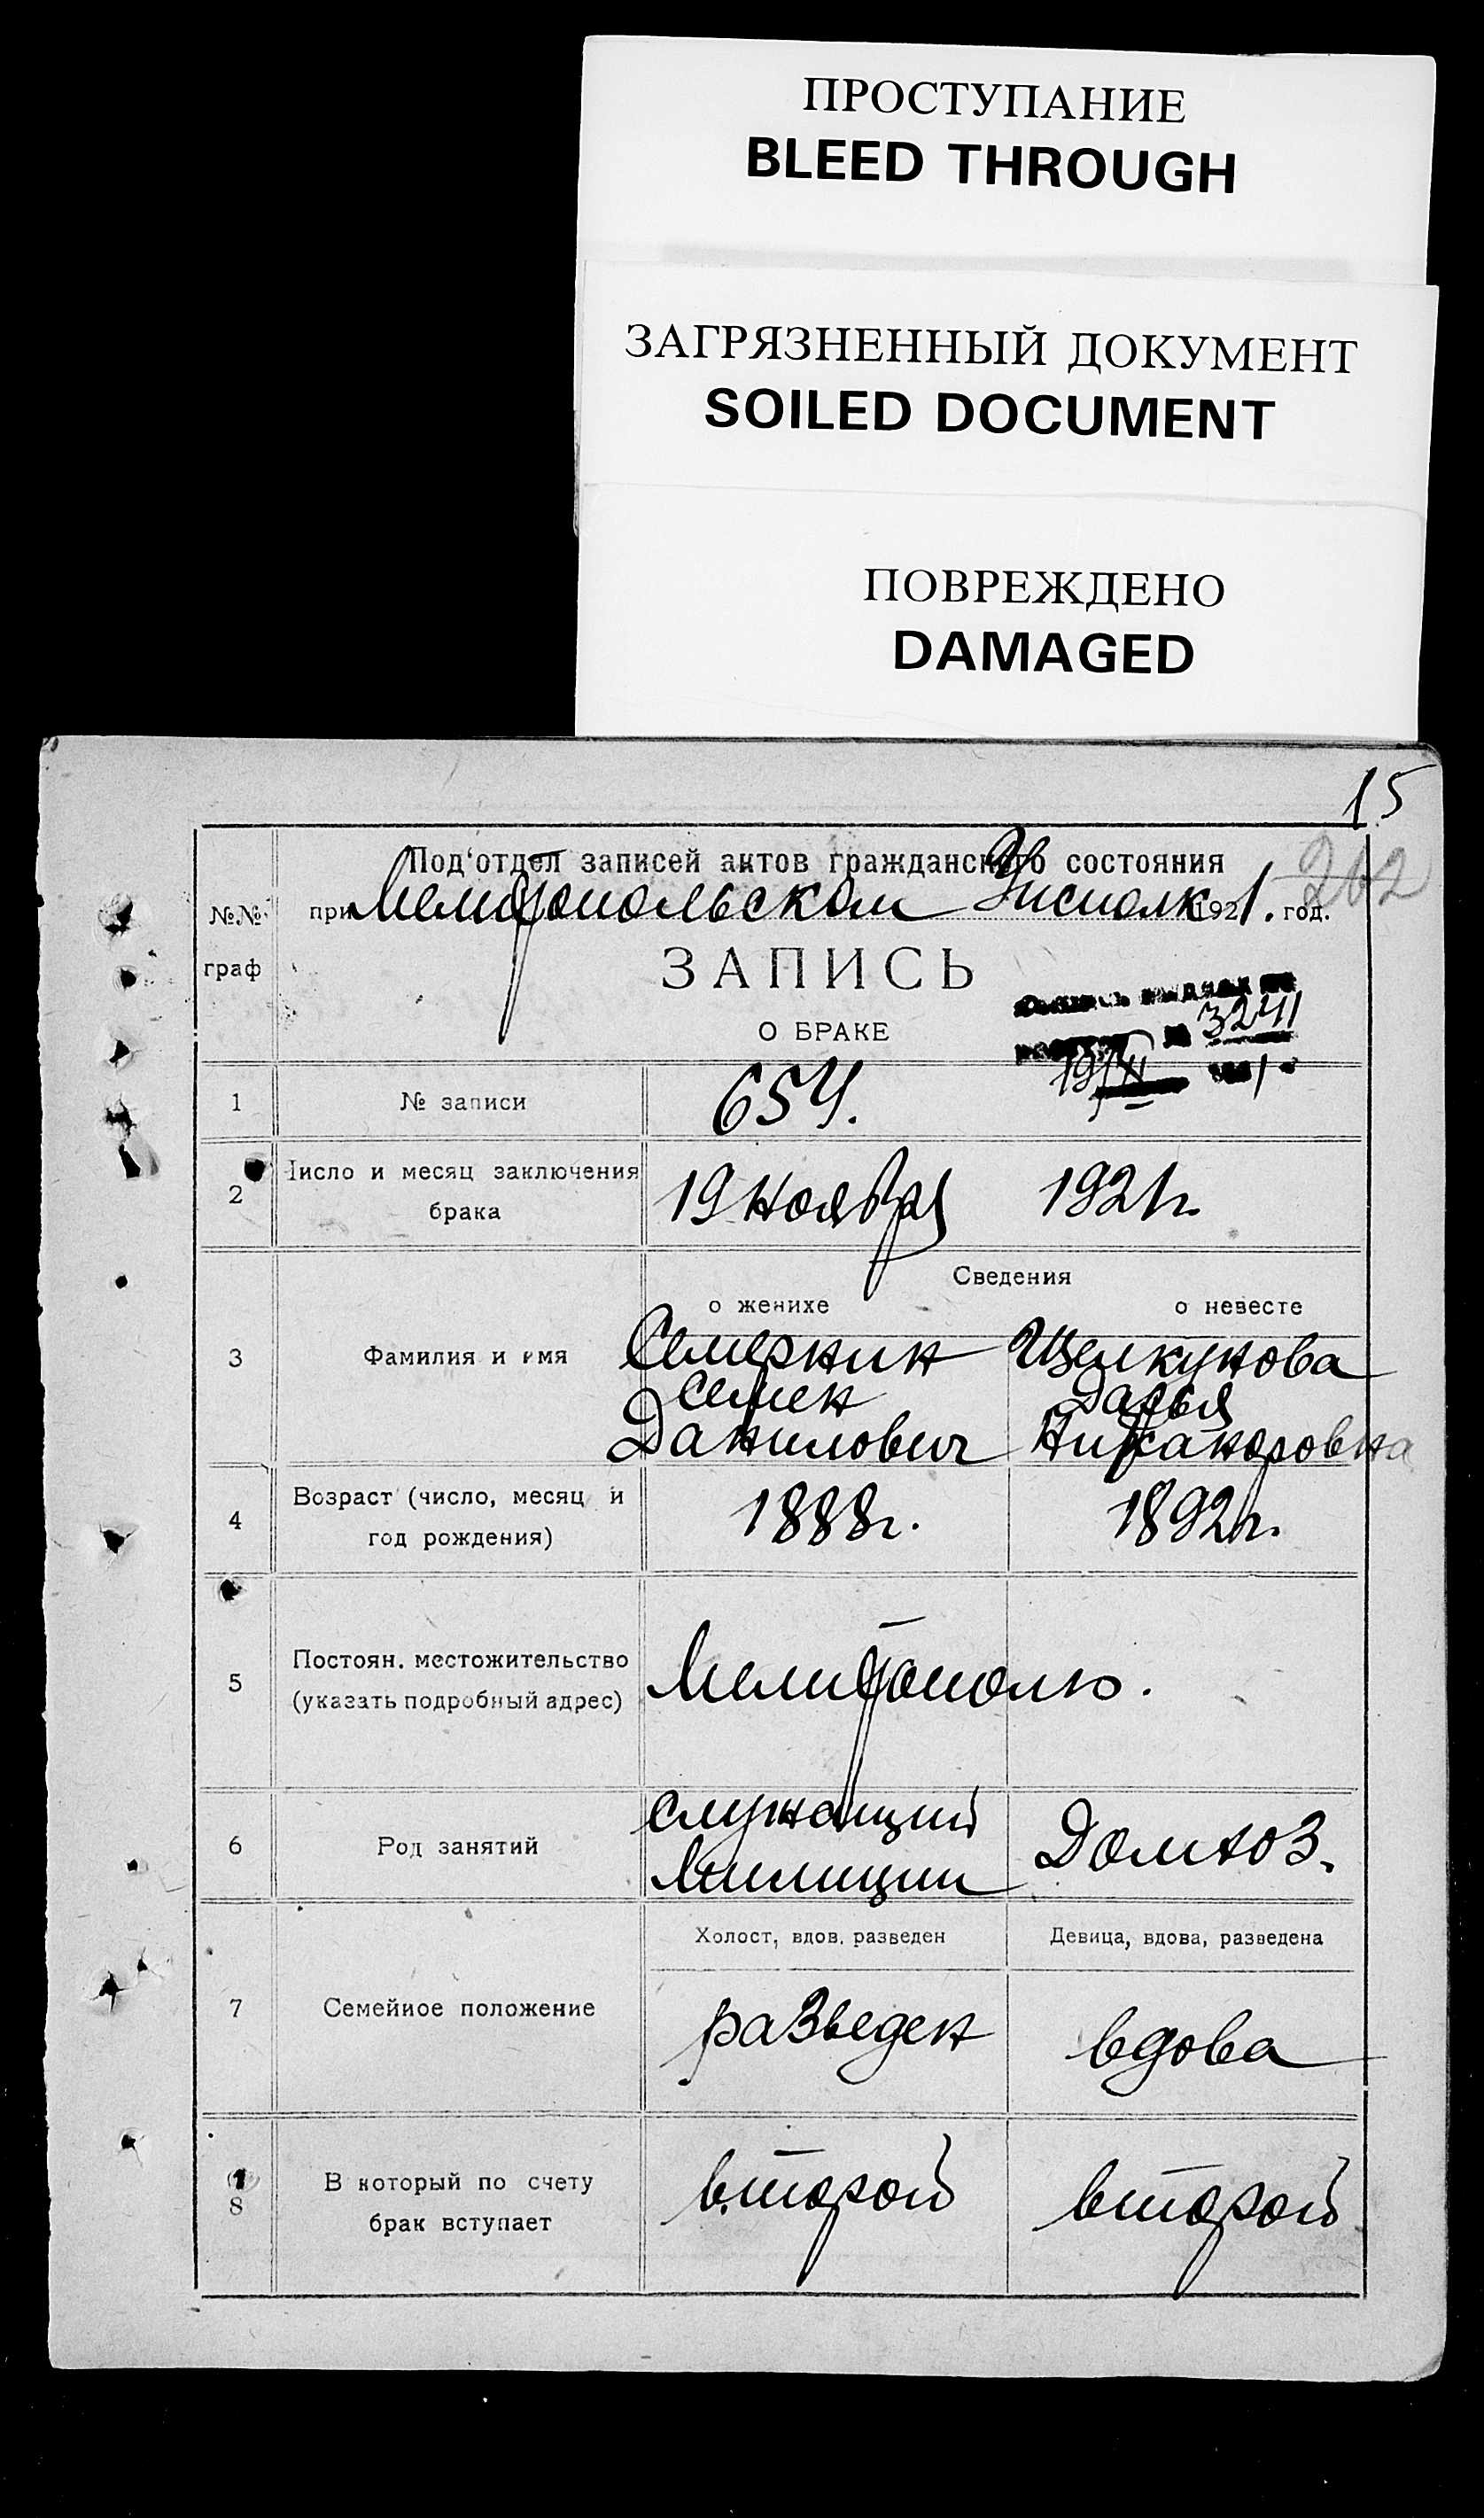 ПРОСТУПАНИЕ
BLEED THROUGH
ЗАГРЯЗНЕННЫЙ ДОКУМЕНТ
SOILED DOCUMENT
ПОВРЕЖДЕНО
DAMAGED
15
202
Под'отдел записей актов гражданского состояния
при Мелитопольском Уисполк. 1921. год.
№№ граф
ЗАПИСЬ
О БРАКЕ
3241
1 № записи 654.
2 Число и месяц заключения
брака
19 ноября 1921 г.
Сведения
о женихе о невесте
3 Фамилия и имя
Семерник Щелкунова
Семен Дарья
Данилович Никаноровна
4 Возраст (число, месяц и
год рождения)
1888 г. 1892 г.
5 Постоян. местожительство
(указать подробный адрес)
Мелитополь.
6 Род занятий
служащий
милиции
Домхоз.
Холост, вдов. разведен Девица, вдова, разведена
7 Семейное положение
разведен вдова
8 В который по счету
брак вступает
второй второй